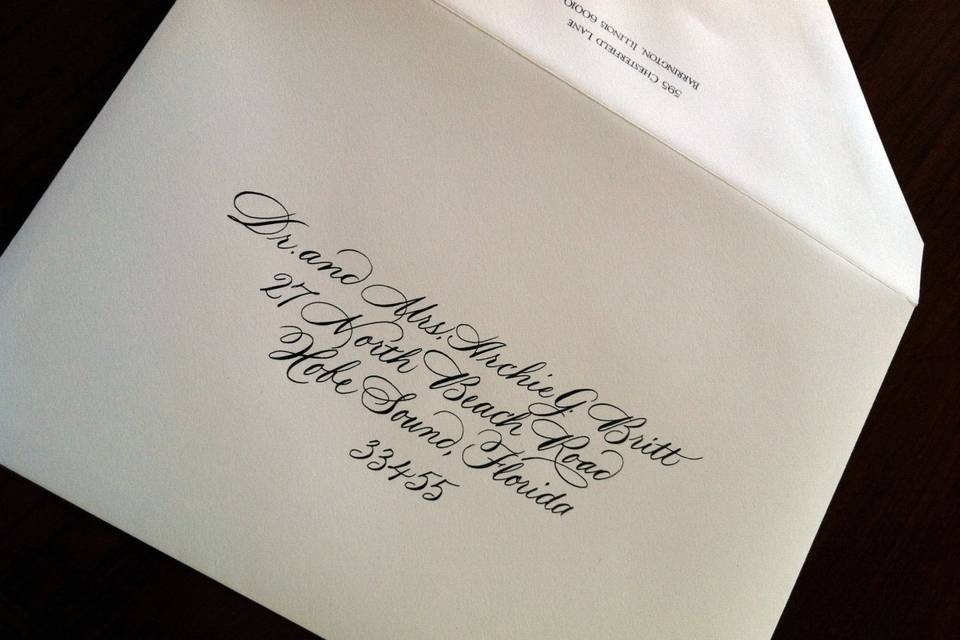 Dr. and Mrs. Archie G. Britt
27 North Beach Road
Hobe Sound, Florida
33455
595 Chesterfield Lane
Barrington, Illinois 60010